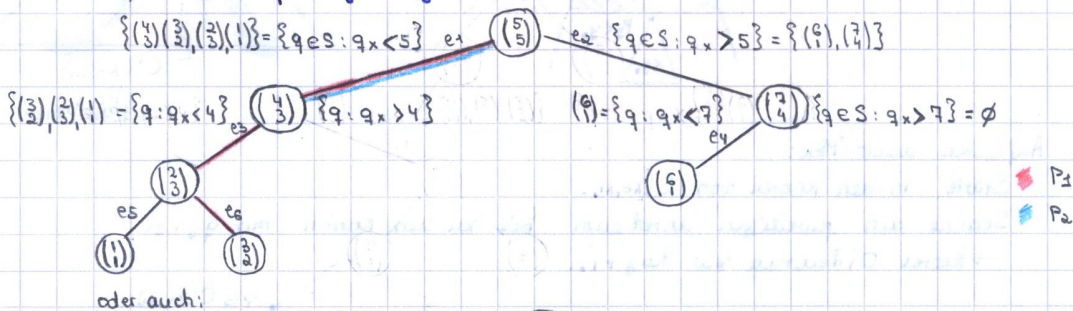 {(4 3)(3 2),(2 3),(1 1)}={q∈S: qx<5} e1 (5 5) e2 {q∈S: qx>5}={(6 1),(7 4)}
{(3 2),(2 3),(1 1) ={q: qx<4} e3 (4 3) {q: qx>4} (6 1)={q: qx<7} e4 (7 4) {q∈S: qx>7}=∅
(2 3) (6 1) P1
e5 e6 P2
(1 1) (3 2)
oder auch: